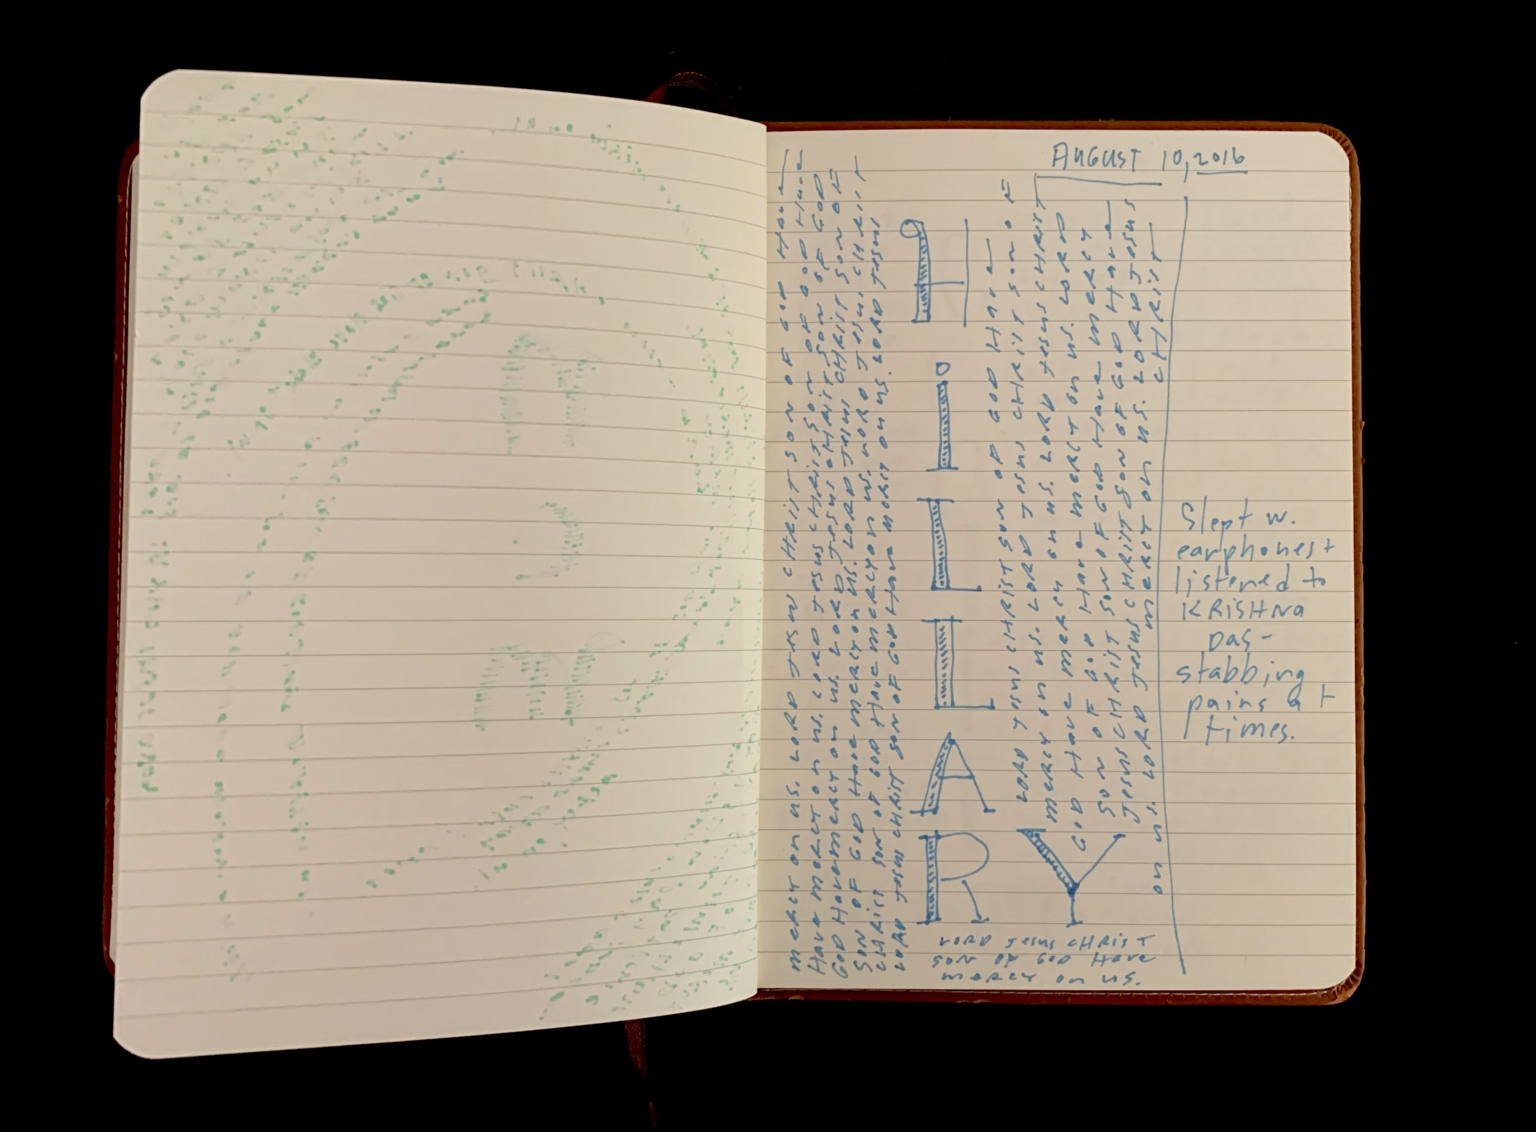 AUGUST 10, 2016
LORD JESUS CHRIST SON OF GOD HAVE MERCY ON US. LORD JESUS
CHRIST SON OF GOD HAVE MERCY ON US. LORD JESUS CHRIST
SON OF GOD HAVE MERCY ON US. LORD JESUS CHRIST SON OF
GOD HAVE MERCY ON US. LORD JESUS CHRIST SON OF GOD
HAVE MERCY ON US. LORD JESUS CHRIST SON OF GOD HAVE
MERCY ON US. LORD JESUS CHRIST SON OF GOD HAVE
H
i
L
L
A
RY
LORD JESUS CHRIST SON OF GOD HAVE
MERCY ON US. LORD JESUS CHRIST SON OF
GOD HAVE MERCY ON US. LORD JESUS CHRIST
SON OF GOD HAVE MERCY ON US. LORD
JESUS CHRIST SON OF GOD HAVE MERCY
ON US. LORD JESUS CHRIST SON OF GOD HAVE
MERCY ON US. LORD JESUS
CHRIST
LORD JESUS CHRIST
SON OF GOD HAVE
MERCY ON US.
Slept w.
earphones +
listened to
KRISHNA
DAS -
stabbing
pains at
times.